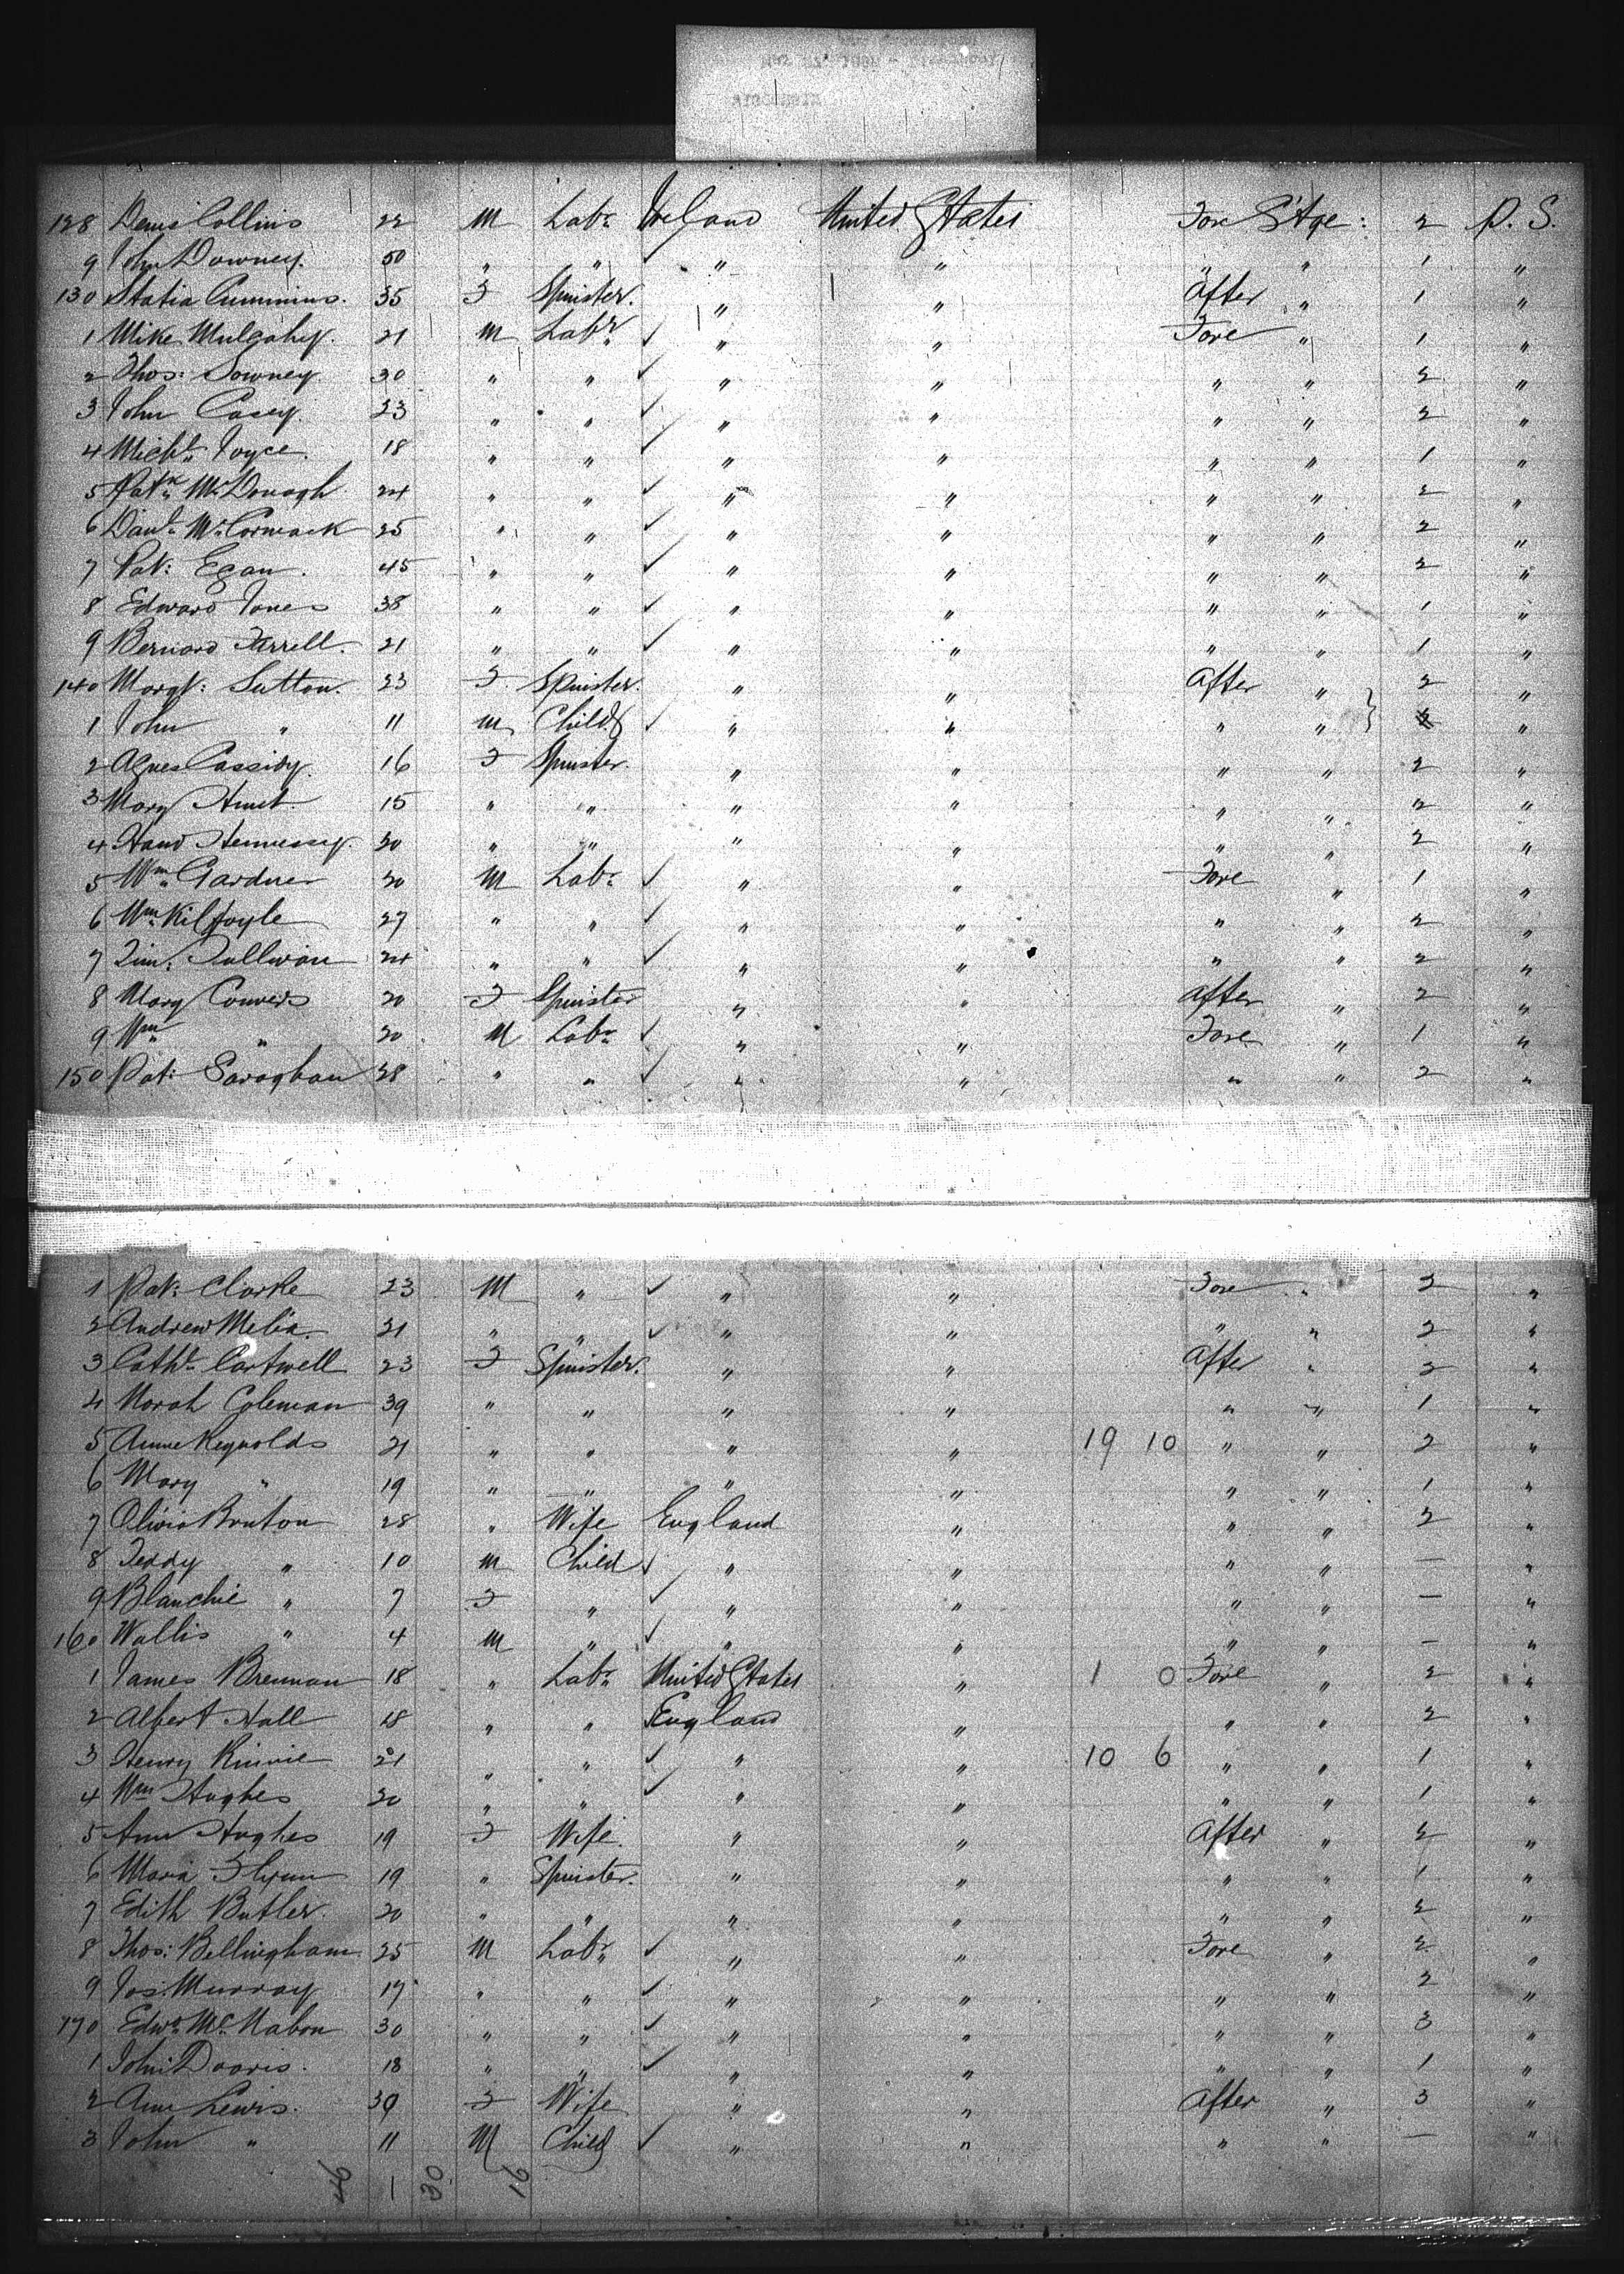 128 Denis Collins 22 M Labr Ireland United States Fore S'tge: 2 P. S.
9 John Downey. 50 " " ✓ " " " " 1 "
130 Statia Cummins. 35 F Spinster. " " After " 1 "
1 Mike Mulcahy. 21 M Labr ✓ " " Fore " 1 "
2 Thos: Downey 30 " " ✓ " " " " 2 "
3 John Casey. 23 " " ✓ " " " " 2 "
4 Michl Joyce. 18 " " ✓ " " " " 1 "
5 Patk McDonagh 24 " " ✓ " " " " 2 "
6 Danl McCormack 25 " " ✓ " " " " 2 "
7 Pat: Egan. 45 " " ✓ " " " " 2 "
8 Edward Jones 38 " " ✓ " " " " 1 "
9 Bernard Farrell. 21 " " ✓ " " " " 1 "
140 Margt: Sutton. 23 F. Spinster. " " After " 2 "
1 John " 11 M Child ✓ " " " " "
2 Agnes Cassidy. 16 F Spinster. " " " " 2 "
3 Mary 15 " " " " " " 2 "
4 Hennessy. 20 " " " " " " 2 "
5 Wm Gardner 20 M Labr ✓ " " Fore " 1 "
6 Wm Kilfoyle 27 " " ✓ " " " " 2 "
7 Tim: Sullivan 24 " " ✓ " " " " 2 "
8 Mary Conners 20 F Spinster " " After " 2 "
9 Wm " 20 M Labr ✓ " " Fore " 1 "
150 Pat: 28 " " ✓ " " " " 2 "
1 Pat: Clarke 23 M " ✓ " " Fore " 2 "
2 Andrew Melia. 21 " " ✓ " " " " 2 "
3 Cathe Cartwell 23 F Spinster. " " After " 2 "
4 Norah Coleman 39 " " " " " " 1 "
5 Anne Reynolds 21 " " " " 19 10 " " 2 "
6 Mary " 19 " " " " " " 1 "
7 Olivia Bruton 28 " Wife England " " " 2 "
8 Teddy " 10 M Child ✓ " " " " — "
9 Blanchie " 7 F " ✓ " " " " — "
160 Wallis " 4 M " ✓ " " " " — "
1 James Brennan 18 " Labr United States " 1 0 Fore " 2 "
2 Albert Hall 18 " " England " " " 2 "
3 Henry 21 " " ✓ " " 10 6 " " 1 "
4 Wm Hughes 20 " " ✓ " " " " 1 "
5 Ann Hughes 19 F Wife. " " After " 2 "
6 Maria Flynn 19 " Spinster. " " " " 1 "
7 Edith Butler. 20 " " " " " " 2 "
8 Thos: Bellingham 25 M Labr ✓ " " Fore " 2 "
9 Jas. Murray 17 " " ✓ " " " " 2 "
170 Edwd McMahon 30 " " ✓ " " " " 3 "
1 John Davis. 18 " " ✓ " " " " 1 "
2 Ann Lewis. 39 F Wife " " After " 3 "
3 John " 11 M Child ✓ " " " " — "
46 1 30 16